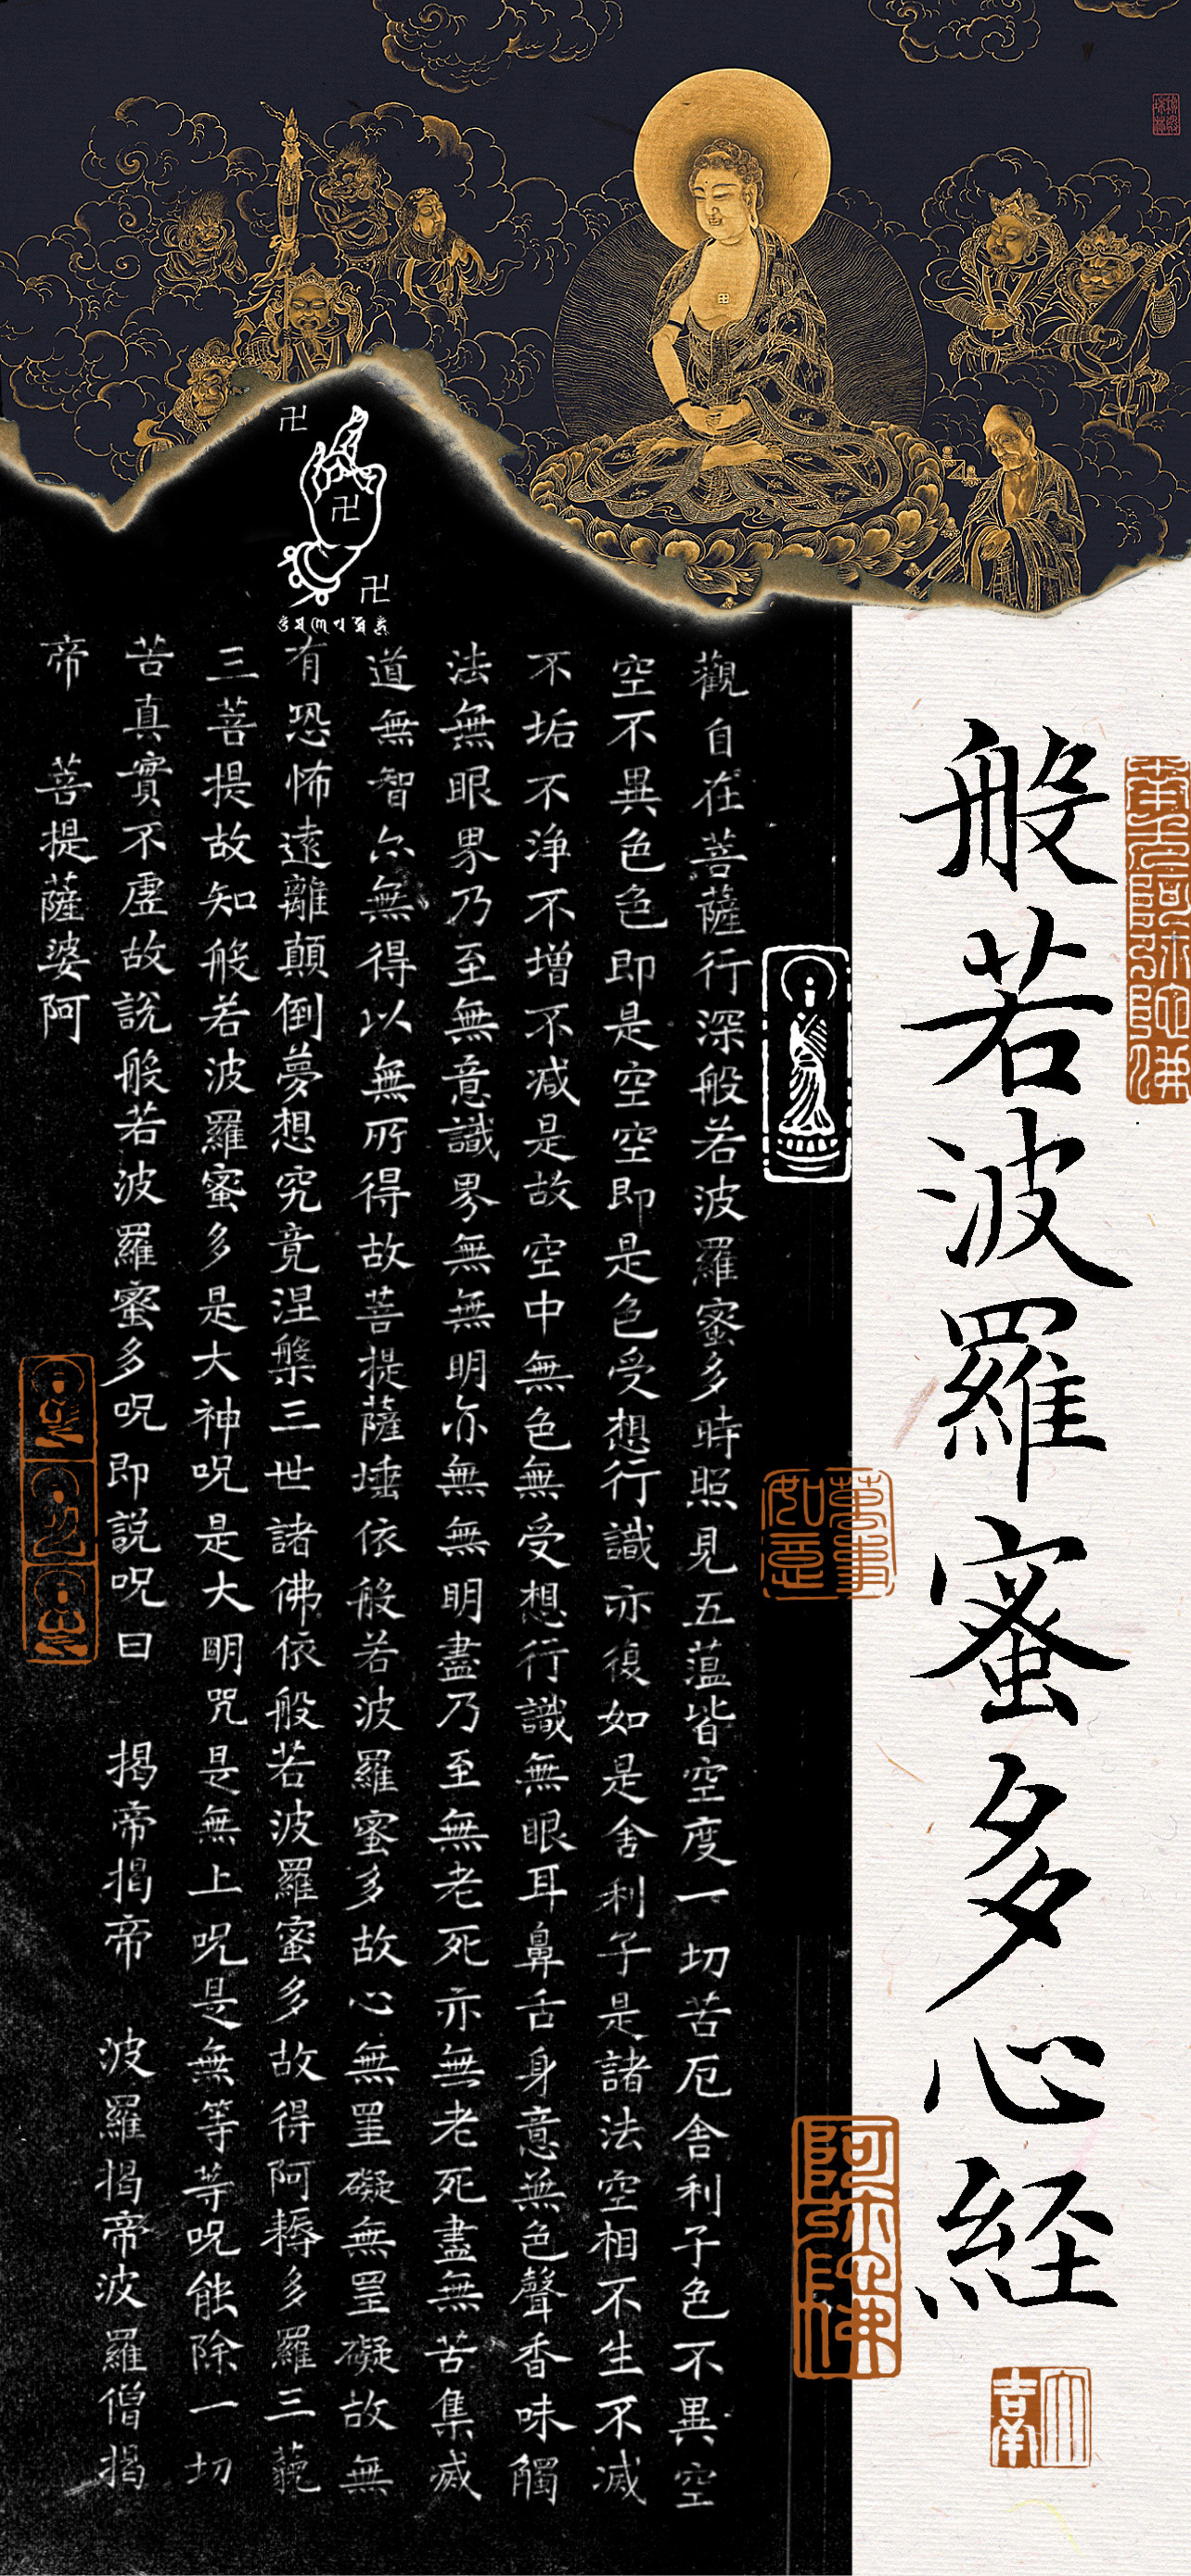 南无阿弥陀佛
般若波羅蜜多心経
大吉羊
萬事如意
阿弥陀佛
觀自在菩薩行深般若波羅蜜多時照見五蕰皆空度一切苦厄舍利子色不異空
空不異色色即是空空即是色受想行識亦復如是舍利子是諸法空相不生不滅
不垢不淨不增不減是故空中無色無受想行識無眼耳鼻舌身意無色聲香味觸
法無眼界乃至無意識界無無明亦無無明盡乃至無老死亦無老死盡無苦集滅
道無智亦無得以無所得故菩提薩埵依般若波羅蜜多故心無罣礙無罣礙故無
有恐怖遠離顛倒夢想究竟涅槃三世諸佛依般若波羅蜜多故得阿耨多羅三藐
三菩提故知般若波羅蜜多是大神呪是大明咒是無上呪是無等等呪能除一切
苦真實不虛故說般若波羅蜜多呪即說呪曰 揭帝揭帝 波羅揭帝波羅僧揭
帝 菩提薩婆阿